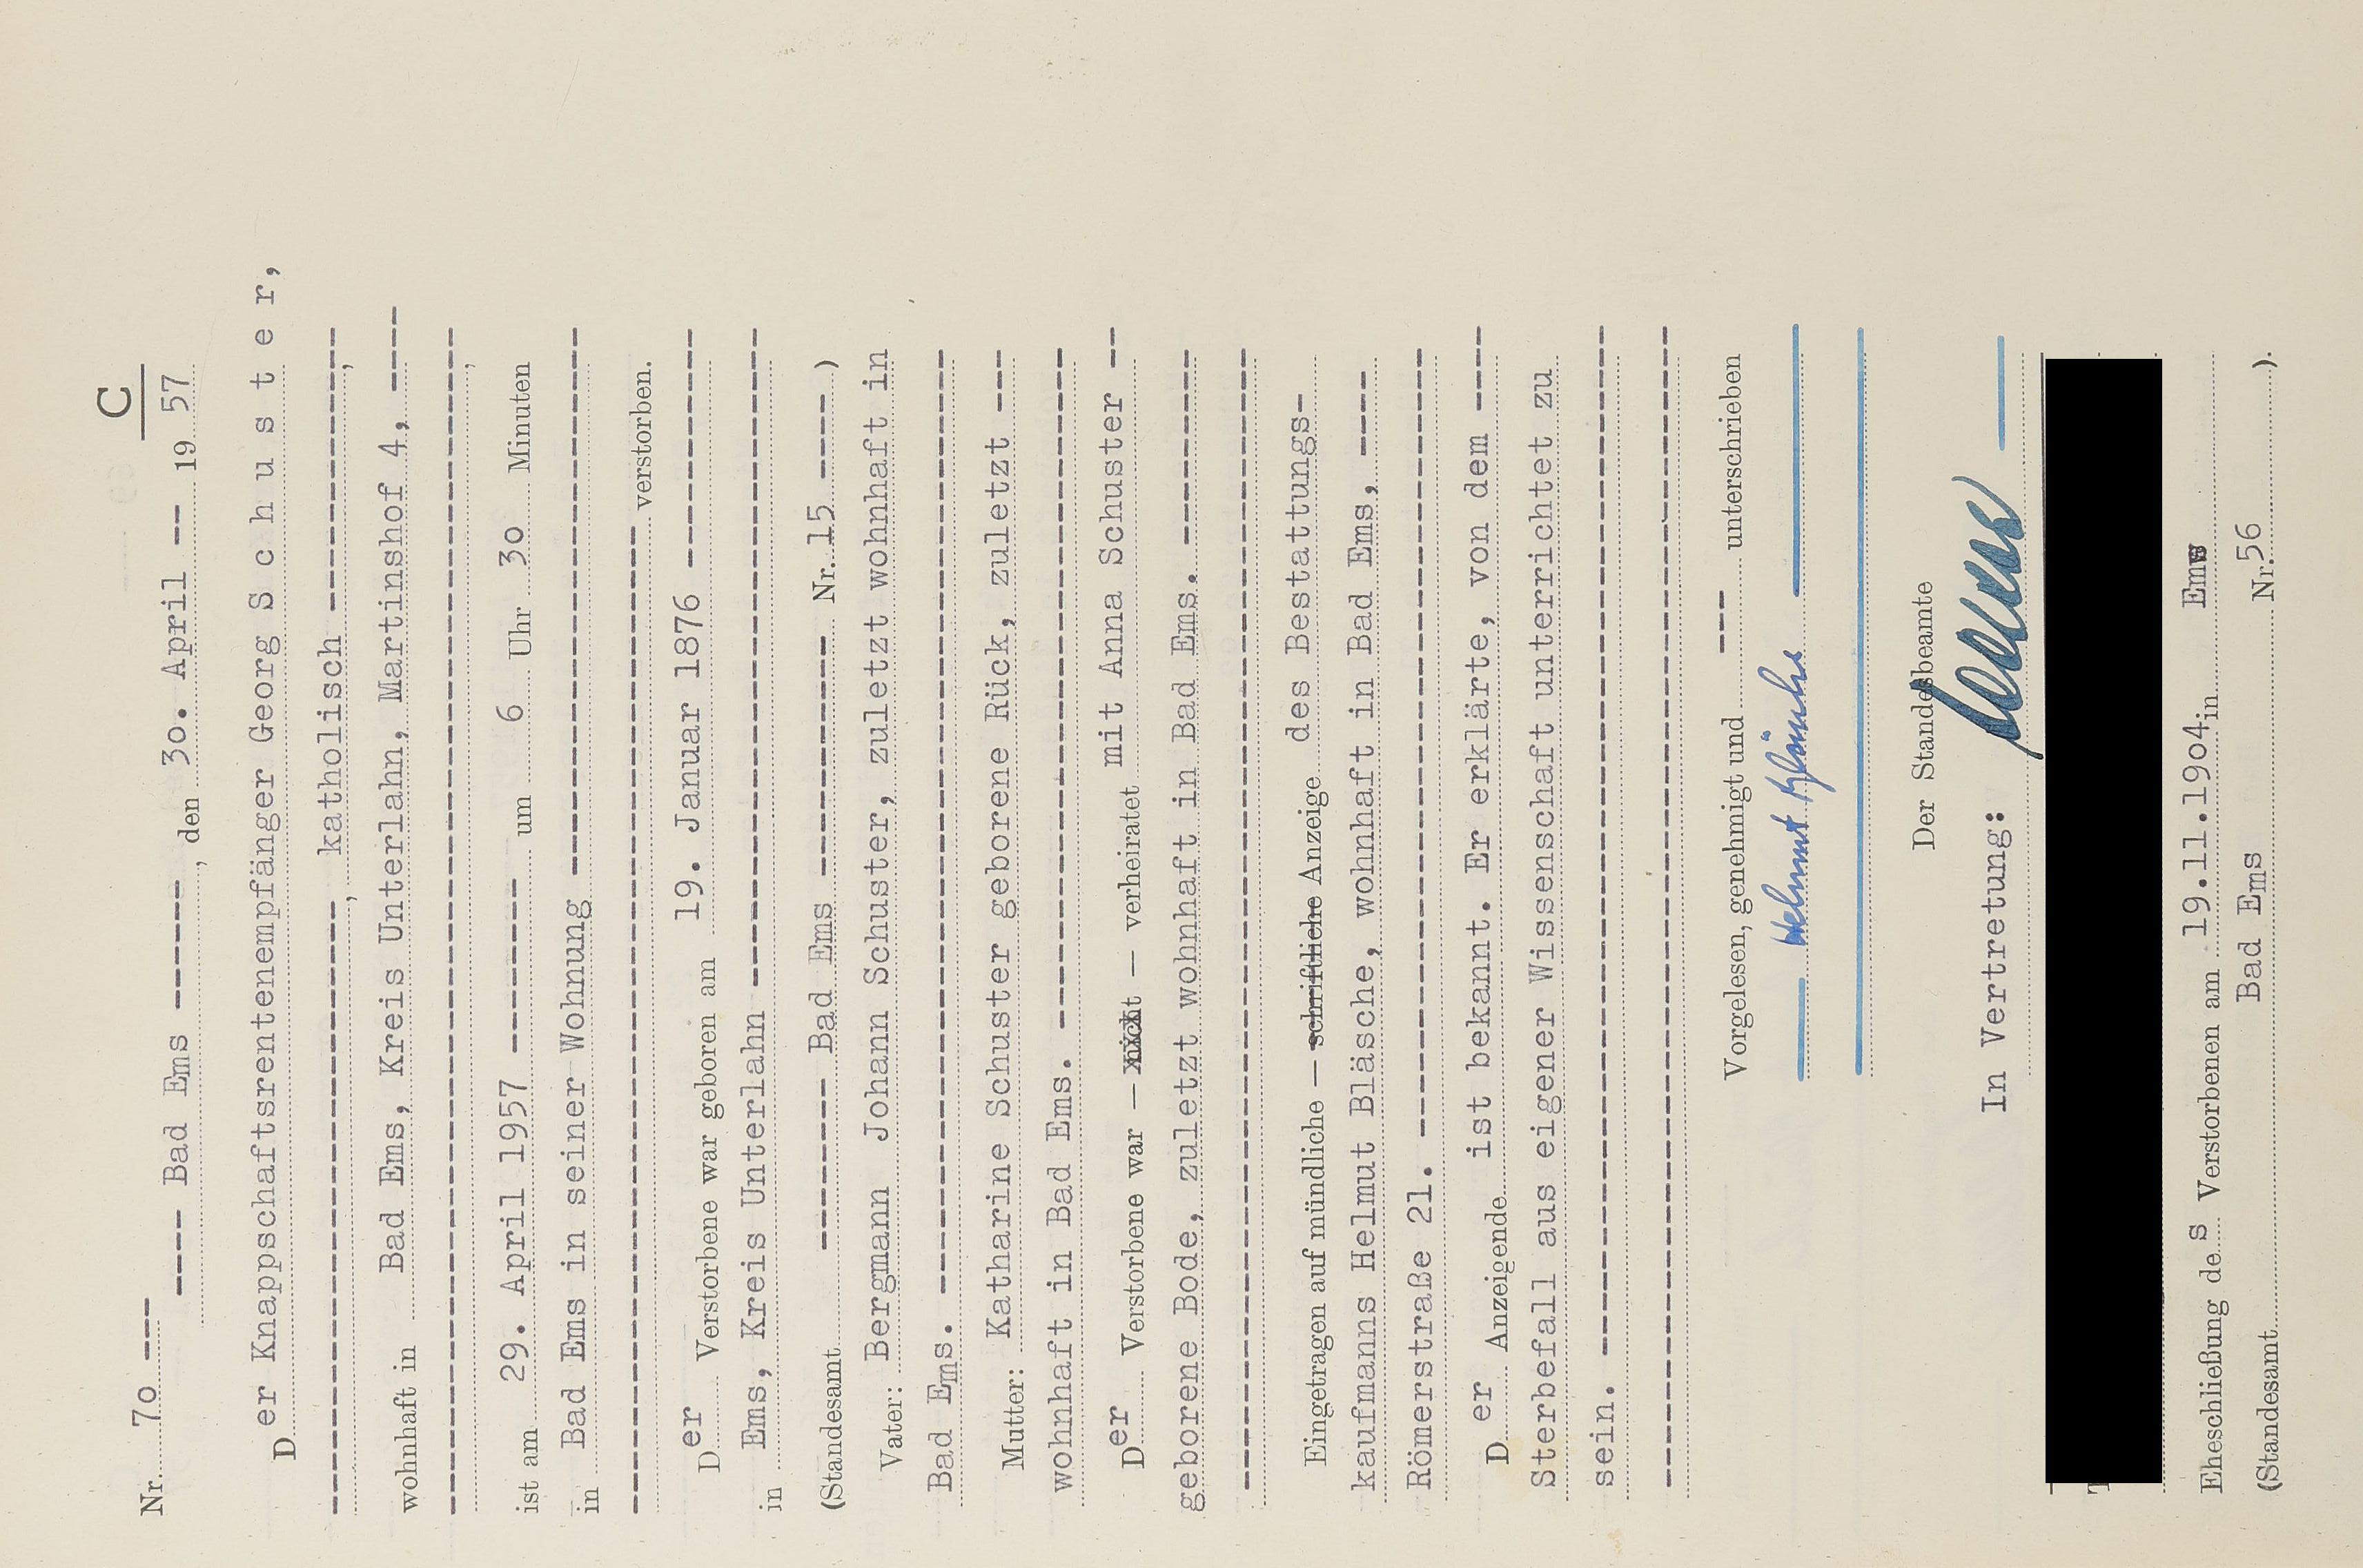 C
Nr. 7o ---
---- Bad Ems ------, den 3o. April -- 19 57
Der Knappschaftsrentenempfänger Georg S c h u s t e r,
--------------------------, katholisch -------------,
wohnhaft in Bad Ems, Kreis Unterlahn, Martinshof 4, ----
--------------------------------------------------,
ist am 29. April 1957 --------- um 6 Uhr 3o Minuten
in Bad Ems in seiner Wohnung -------------------------
------------------------------------------ verstorben.
Der Verstorbene war geboren am 19. Januar 1876 ----------
in Ems, Kreis Unterlahn ------------------------------
(Standesamt --------- Bad Ems ------------ Nr. 15 ----)
Vater: Bergmann Johann Schuster, zuletzt wohnhaft in
Bad Ems. -----------------------------------------
Mutter: Katharine Schuster geborene Rück, zuletzt ---
wohnhaft in Bad Ems. ------------------------------
Der Verstorbene war — nicht — verheiratet mit Anna Schuster --
geborene Bode, zuletzt wohnhaft in Bad Ems. ---------
--------------------------------------------------
Eingetragen auf mündliche — schriftliche Anzeige des Bestattungs-
kaufmanns Helmut Bläsche, wohnhaft in Bad Ems, ----
Römerstraße 21. -----------------------------------
Der Anzeigende ist bekannt. Er erklärte, von dem ----
Sterbefall aus eigener Wissenschaft unterrichtet zu
sein. ---------------------------------------------
--------------------------------------------------
Vorgelesen, genehmigt und --- unterschrieben
Helmut Bläsche
Der Standesbeamte
In Vertretung:
Eheschließung des Verstorbenen am 19.11.19o4. in Ems
(Standesamt Bad Ems Nr. 56 ).